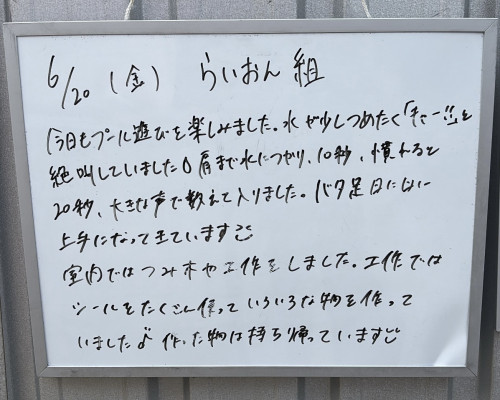 6/20（金） らいおん組
今日もプール遊びを楽しみました。水が少しつめたく「キャー!!」と
絶叫していました 肩まで水につかり、10秒、慣れると
20秒、大きな声で数えて入りました。バタ足日に日に
上手になってきています
室内ではつみ木や工作をしました。工作では
シールをたくさん使っていろいろな物を作って
いました♪ 作った物は持ち帰っています